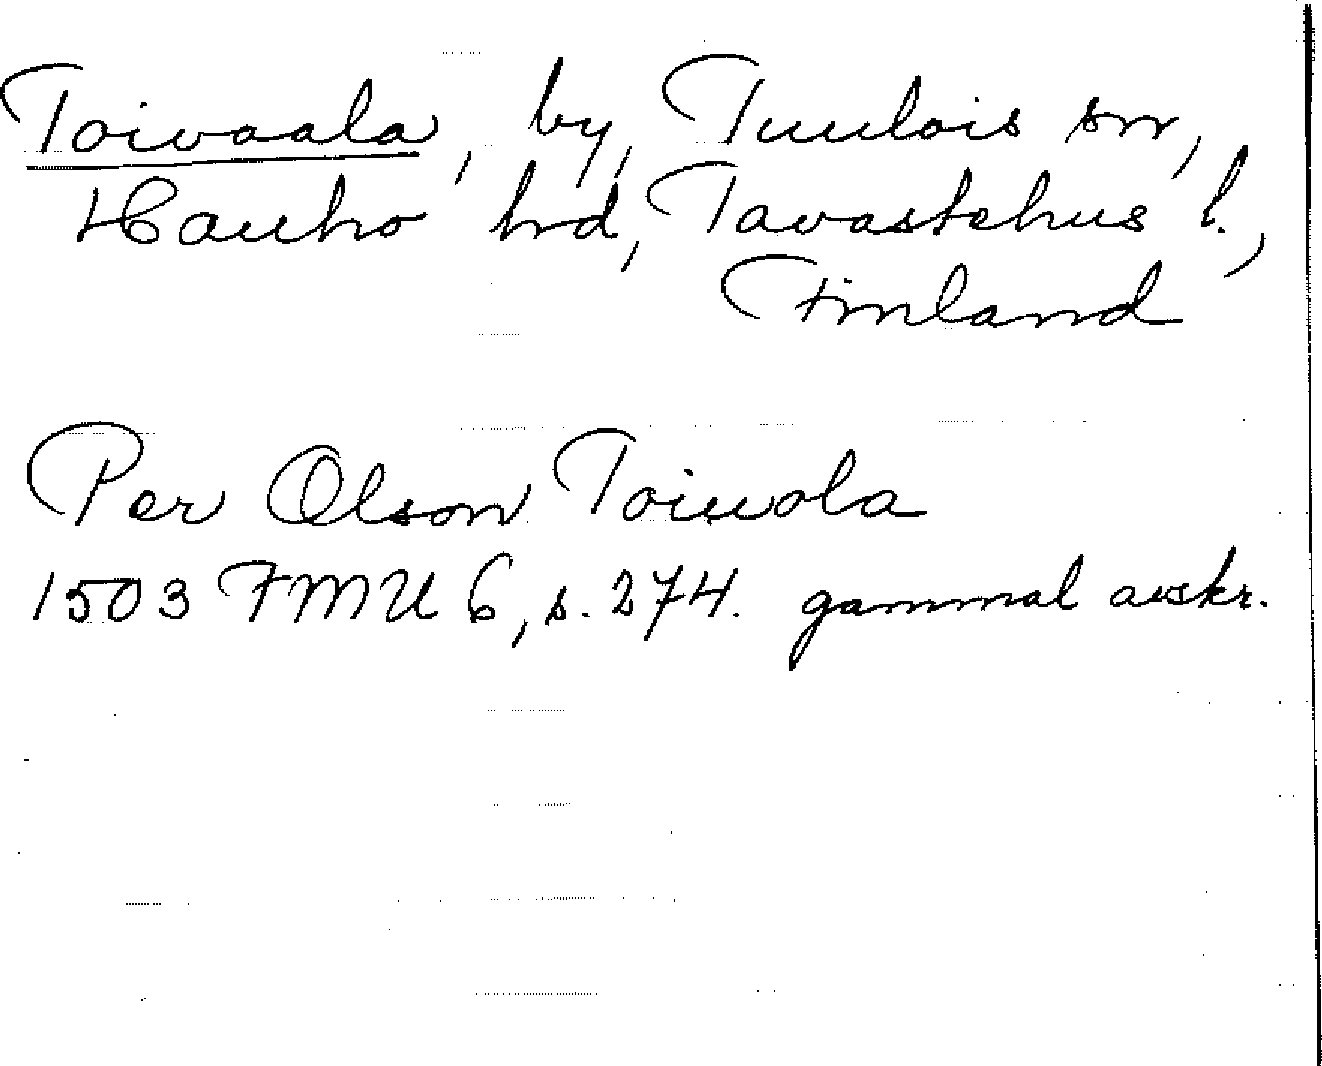 Toivaala, by, Tuulois sn,
Hauho hd, Tavastehus l.,
Finland
Per Olson Toiuola
1503 FMU 6, s. 274. gammal avskr.